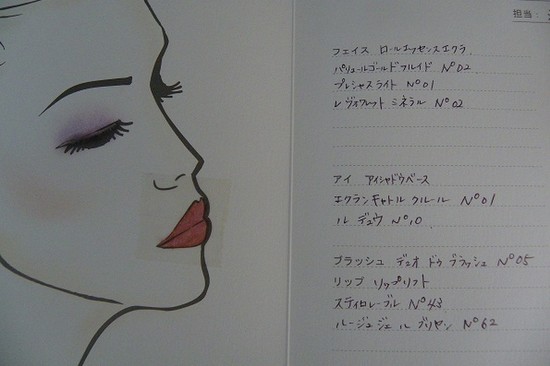 担当:
フェイス ロールエッセンスエクラ
パリュールゴールドフルイド Nº02
プレシャスライト Nº01
レヴィヴァレット ミネラル Nº02
アイ アイシャドウベース
エクランキャトル クルール Nº01
ル デュウ Nº10
ブラッシュ デュオ ドゥ ブラッシュ Nº05
リップ リップリフト
スティロレーブル Nº43
ルージュ ジェル ブリヤン Nº62